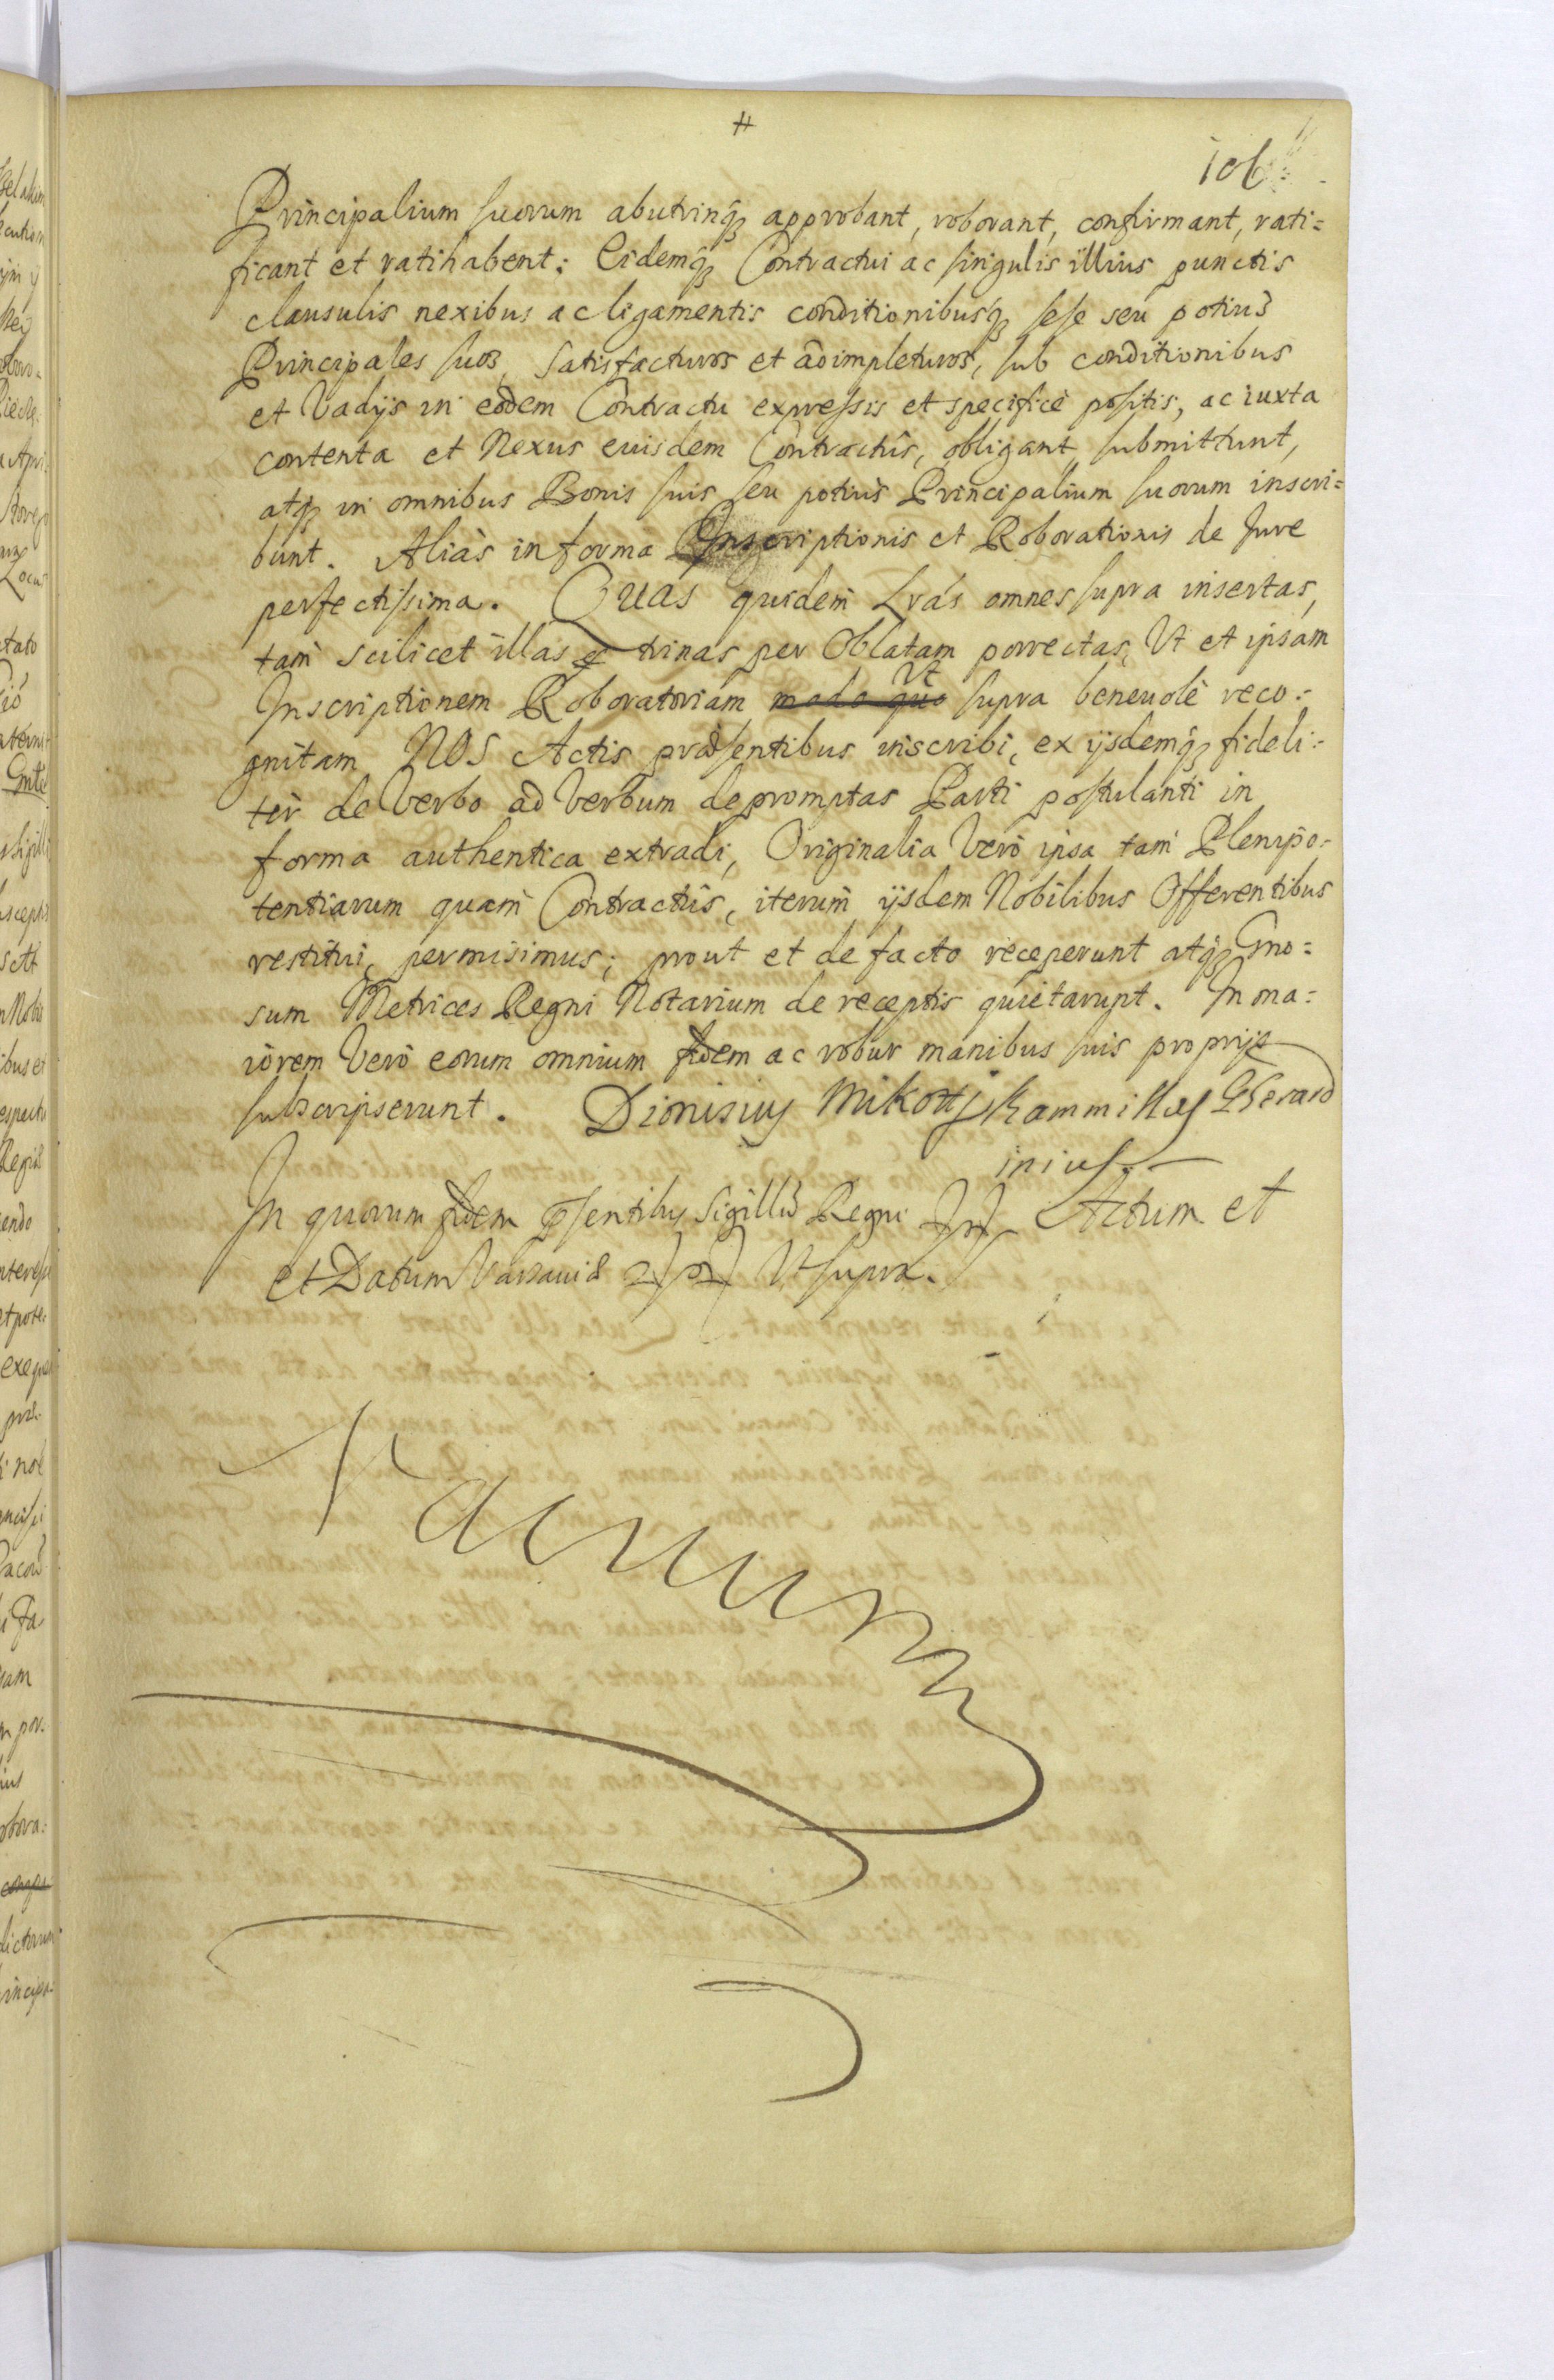 #
106
Principalium suorum abutrinq3 approbant, roborant, confirmant, rati=
ficant et ratihabent: Eidemq3 Contractui ac singulis illius punctis
clausulis nexibus ac ligamentis conditionibusq3 sese seu potius
Principales suos, satisfacturos et adimpleturos, sub conditionibus
et Vadijs in eodem Contractu expressis et specificè positis, ac iuxta
contenta et Nexus euisdem Contractûs, obligant, submittunt,
atq3 in omnibus Bonis suis seu potius Principalium suorum inscri=
bunt. Aliàs in forma Inscriptionis et Roborationis de Jure
perfectissima. Quas quidem Lrás omnes supra insertas,
tam scilicet illas trinas per Oblatam porrectas, Ut et ipsam
Inscriptionem Roboratoriam modo quo Ut supra beneuolè reco=
gnitam NOS Actis præsentibus inscribi, ex ijsdemq3 fideli=
tèr de Verbo ad Verbum depromptas Parti postulanti in
forma authentica extradi, Originalia Verò ipsa tam Plenipo=
tentiarum quam Contractûs, iterum ijsdem Nobilibus Offerentibus
restitui, permisimus; prout et de facto receperunt atq3 Gno=
sum Metrices Regni Notarium de receptis quietarunt. In ma=
iorem Verò eorum omnium fidem ac robur manibus suis proprijs
subscripserunt. Dionisius Kammillus Gherard
inius
In quorum fidem psentibus Sigillũ Regni Actum et
et Datum Varsauiæ Ut supra.